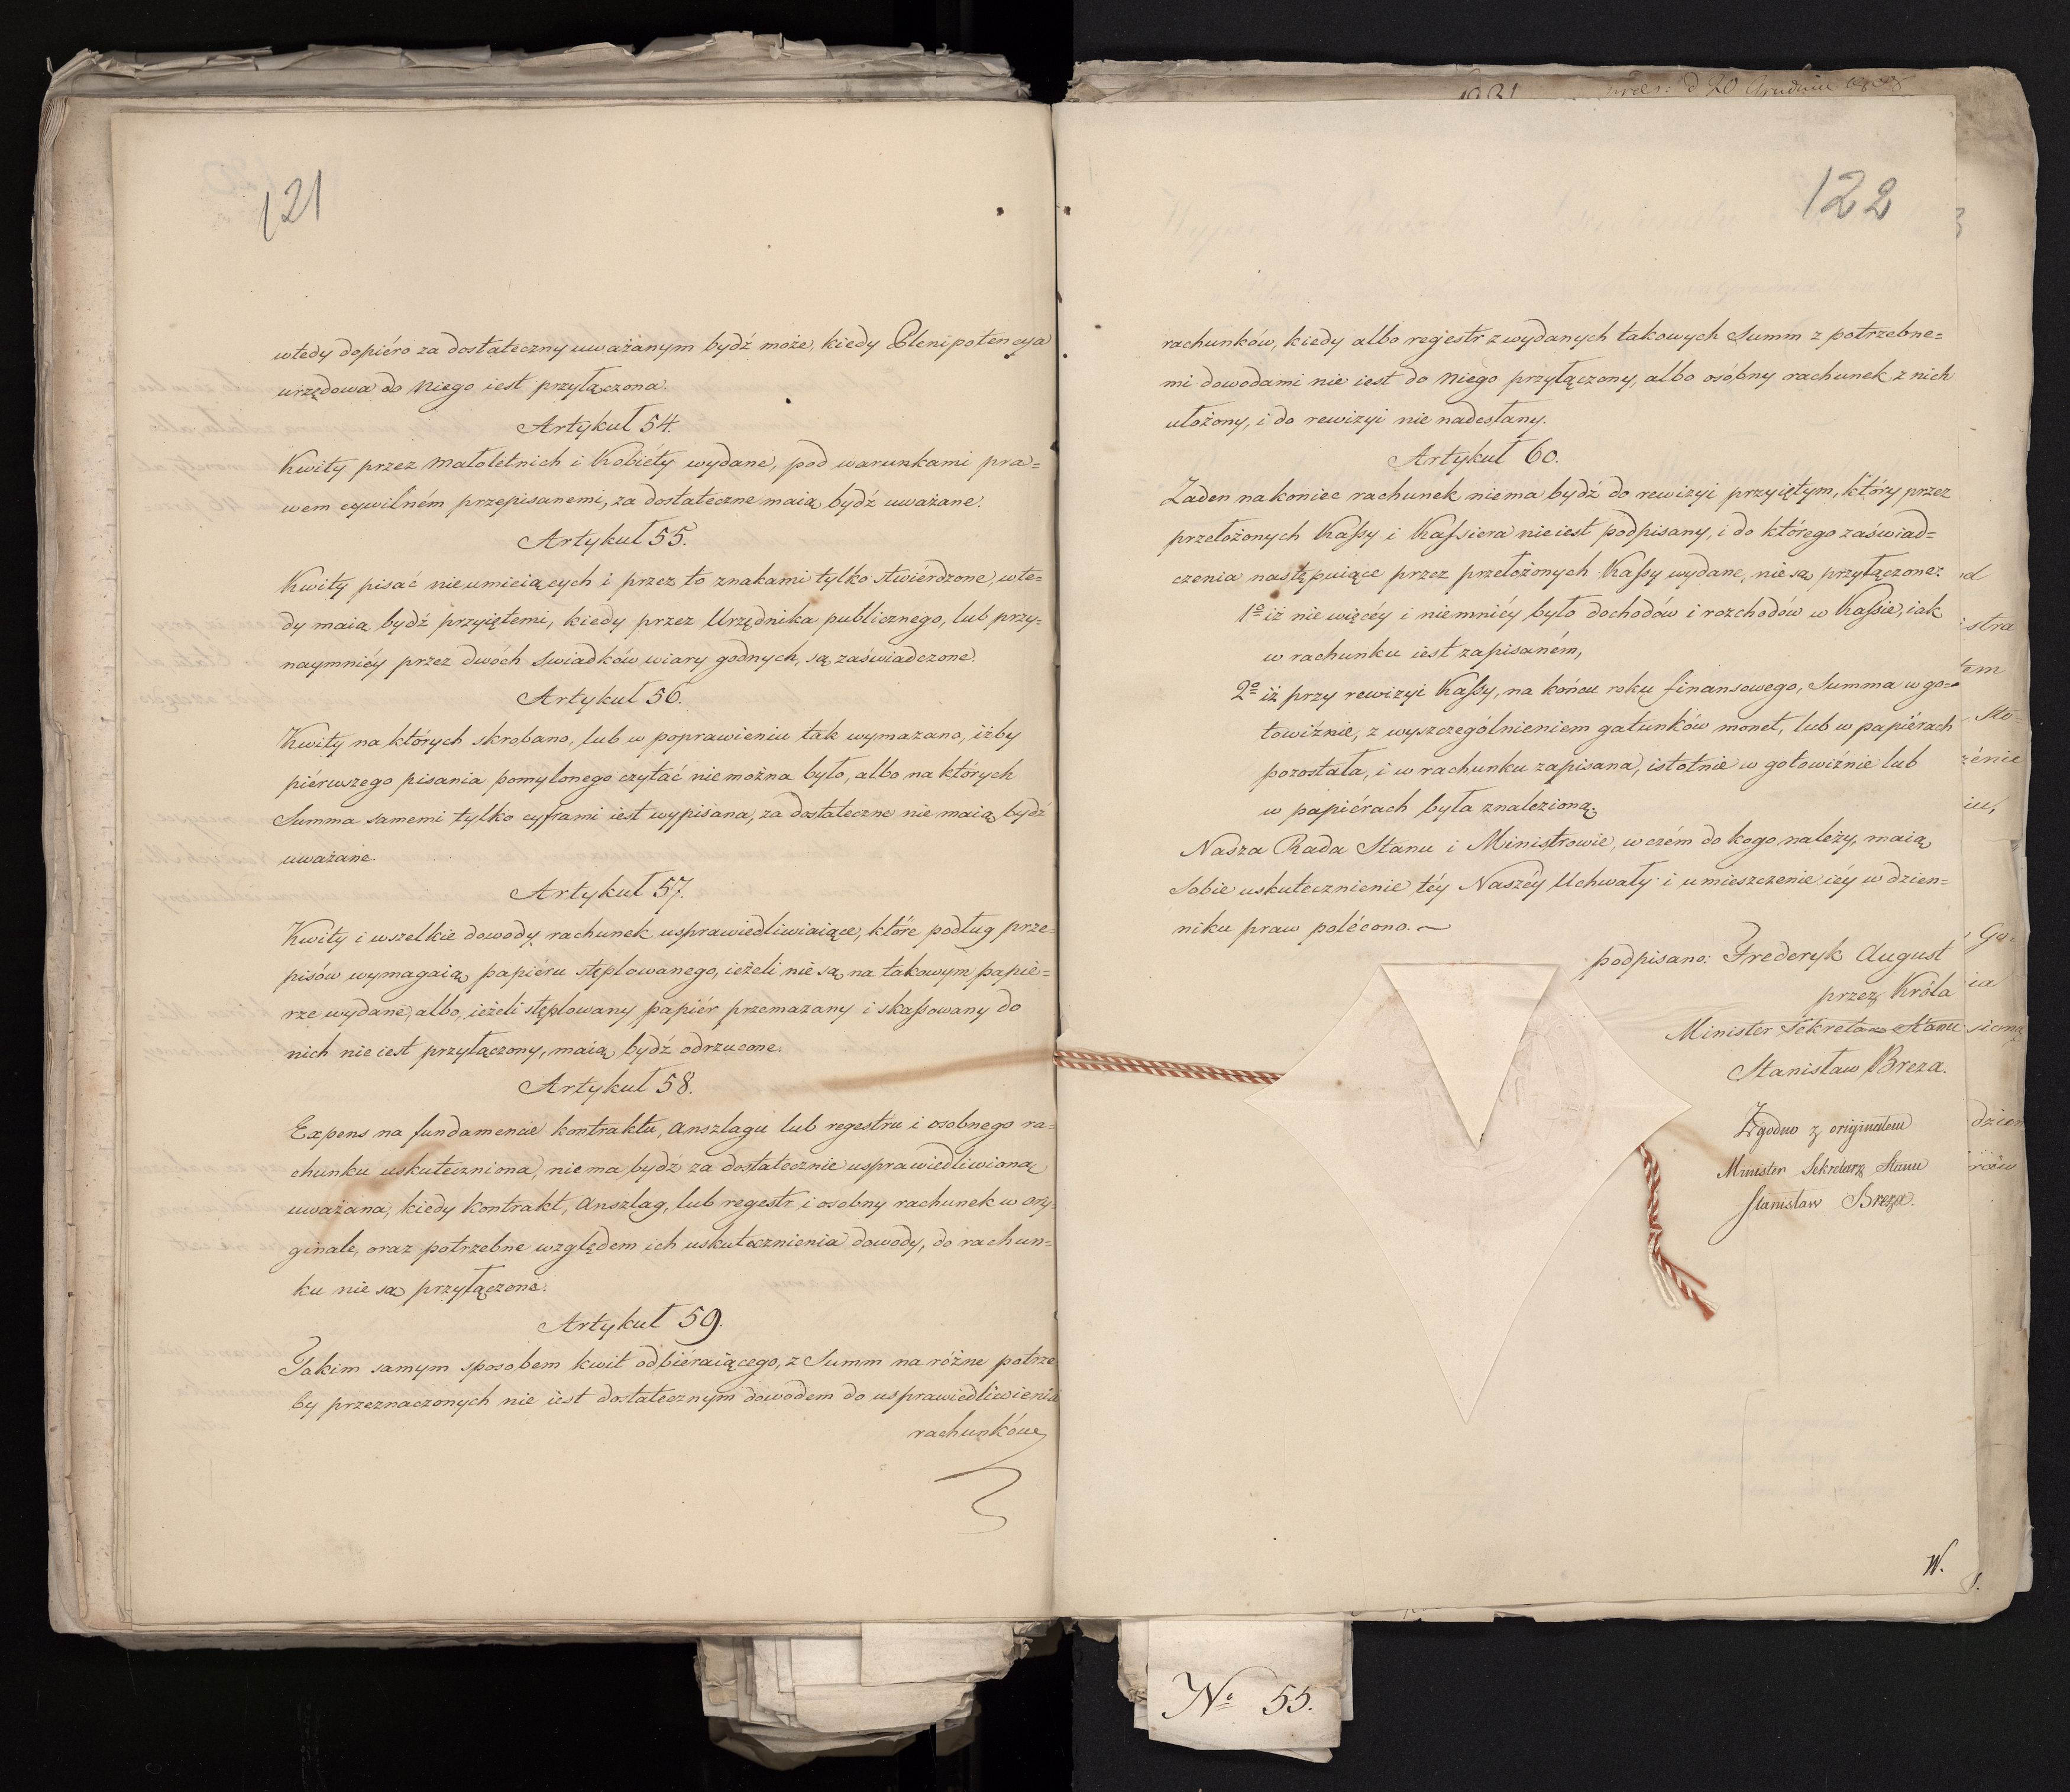 121
wtedy dopiéro za dostateczny uważanym bydź może, kiedy Plenipotencya
urzędowa do niego iest przyłączona.
Artykuł 54.
Kwity przez małoletnich i Kobiéty wydane, pod warunkami pra=
wem cywilném przepisanemi, za dostateczne maią bydź uważane.
Artykuł 55.
Kwity pisać nieumieiących i przez to znakami tylko stwiérdzone, wte=
dy maią bydź przyiętemi, kiedy przez Urzędnika publicznego, lub przy=
naymniéy przez dwóch swiadków wiary godnych, są zaświadczone.
Artykuł 56.
Kwity na których skrobano, lub w poprawieniu tak wymazano, iżby
piérwszego pisania pomylonego czytać niemożna było, albo na których
Summa samemi tylko cyframi iest wypisana, za dostateczne nie maią bydź
uważane.
Artykuł 57.
Kwity i wszelkie dowody rachunek usprawiedliwiaiące, które podług prze=
pisów wymagaią papiéru stęplowanego, ieżeli nie są na takowym papié=
rze wydane, albo, ieżeli stęplowany papiér przemazany i skassowany do
nich nie iest przyłączony, maią bydź odrzucone.
Artykuł 58.
Expens na fundamencie kontraktu, anszlagu lub regestru i osobnego ra=
chunku uskuteczniona, niema bydź za dostatecznie usprawiedliwioną
uważana, kiedy kontrakt, anszlag, lub regestr i osobny rachunek w ory=
ginale, oraz potrzebne względem ich uskutecznienia dowody, do rachun=
ku nie są przyłączone.
Artykuł 59.
Takim samym sposobem kwit odbiéraiącego, z Summ na różne potrze
by przeznaczonych nie iest dostatecznym dowodem do usprawiedliwienia
rachunków
1821
d 20 Grudnia
122
rachunków, kiedy albo regestr z wydanych takowych Summ z potrzebne=
mi dowodami nie iest do niego przyłączony, albo osóbny rachunek z nich
ułożony, i do rewizyi nie nadesłany.
Artykuł 60.
Żaden nakoniec rachunek niema bydź do rewizyi przyiętym, który przez
przełożonych Kassy i Kassiera nieiest podpisany, i do którego zaświad=
czenia następuiące przez przełożonych Kassy wydane, nie są przyłączone:
1º iż nie więcéy i niemniéy było dochodów i rozchodów w Kassie, iak
w rachunku iest zapisaném,
2º iż przy rewizyi Kassy, na końcu roku finansowego, Summa w go=
towiźnie, z wyszczególnieniem gatunków monet, lub w papiérach
pozostała, i w rachunku zapisana, istotnie w gotowiźnie lub
w papiérach była znalezioną.
Nasza Rada Stanu i Ministrowie, w czém do kogo należy, maią
Sobie uskutecznienie téy Naszéy Uchwały i umieszczenie iéy w dzien=
niku praw polécono.
podpisano: Frederyk August
przez Króla
Minister Sekretarz Stanu
Stanisław Breza.
Zgodno z originałem
Minister Sekretarz Stanu
Stanisław Breza.
W.
Nº 55.